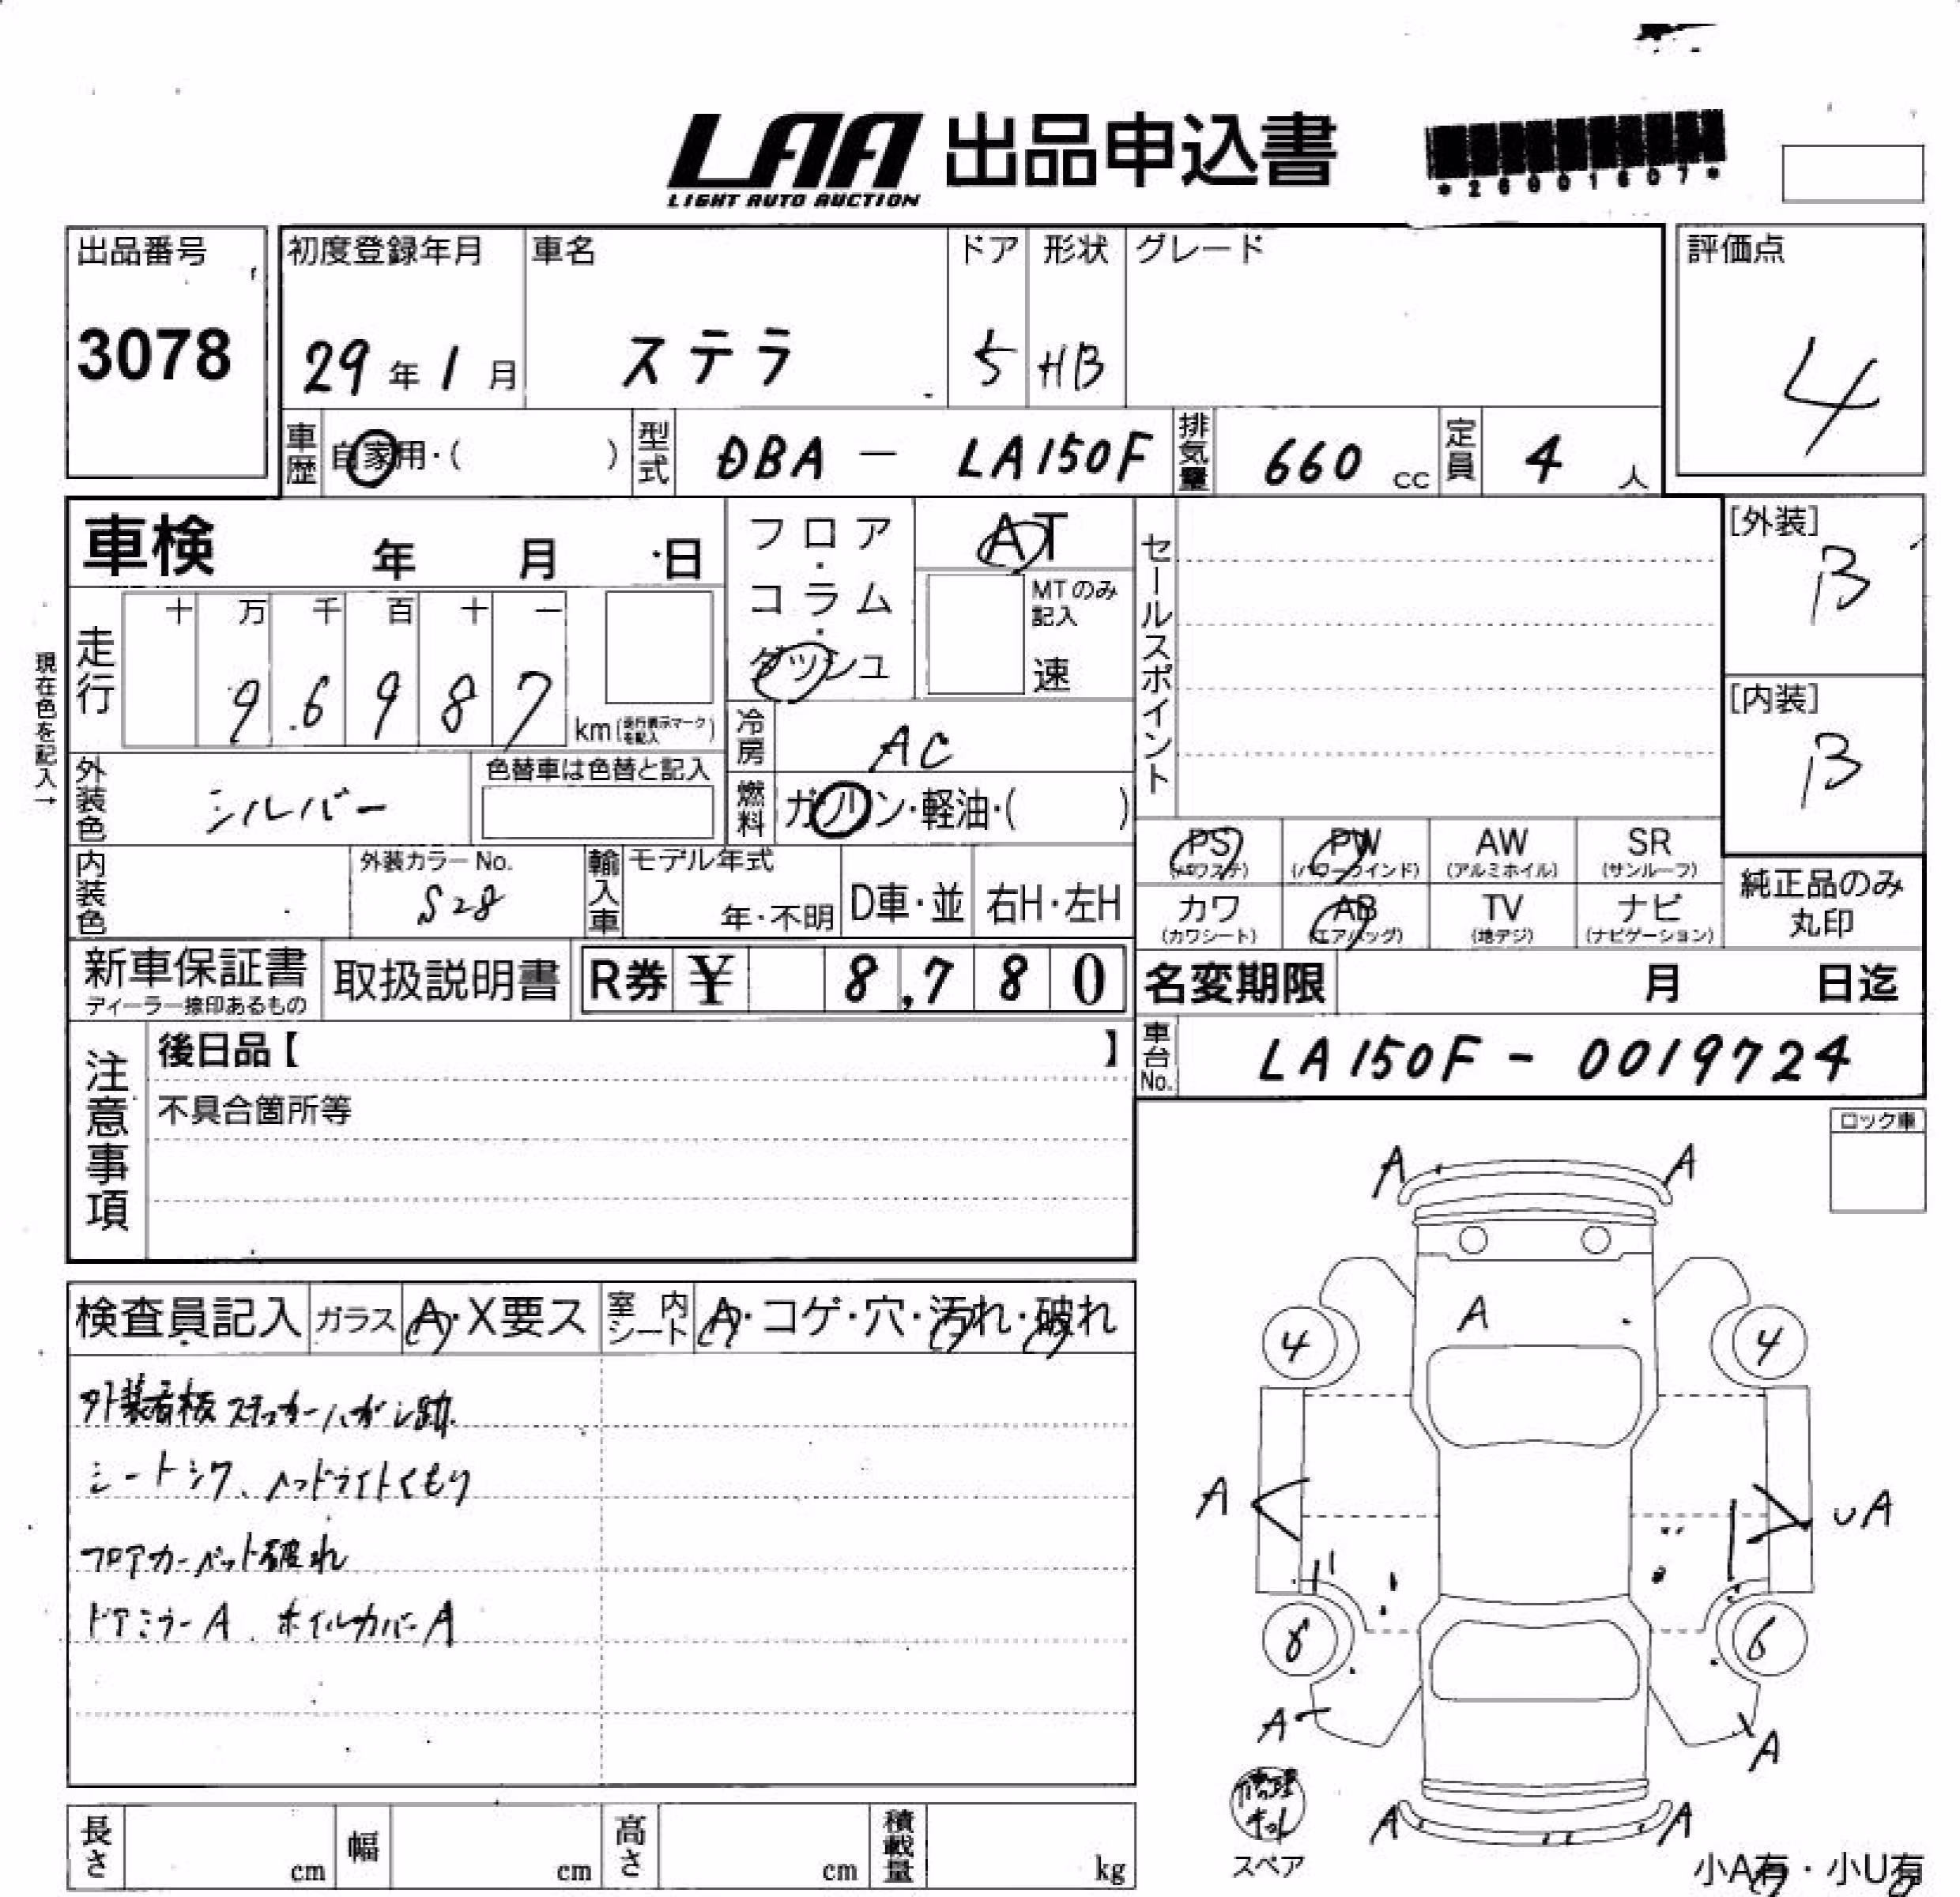 LAA 出品申込書
LIGHT AUTO AUCTION
*26901607*
出品番号
3078
初度登録年月 車名 ドア 形状 グレード
29年1月 ステラ 5 HB
評価点
4
車歴 自家用・( ) 型式 DBA - LA150F 排気量 660 cc 定員 4 人
車検 年 月 日
フロア・コラム・ダッシュ
AT
MTのみ記入
速
セールスポイント
[外装]
B
[内装]
B
現在色を記入→
走行 十 万 千 百 十 一
9 6 9 8 7 km(走行表示マークを記入)
冷房 AC
外装色 シルバー 色替車は色替と記入
燃料 ガソリン・軽油・( )
PS PW AW SR
(パワステ) (パワーウインド) (アルミホイル) (サンルーフ)
カワ AB TV ナビ
(カワシート) (エアバッグ) (地デジ) (ナビゲーション)
純正品のみ
丸印
内装色 外装カラーNo. S28
輸入車 モデル年式 年・不明 D車・並 右H・左H
新車保証書
ディーラー捺印あるもの
取扱説明書 R券 ¥ 8,780
名変期限 月 日迄
車台No. LA150F - 0019724
注意事項
後日品【 】
不具合箇所等
ロック車
検査員記入 ガラス A・X要ス 室内シート A・コゲ・穴・汚れ・破れ
外装看板ステッカーハガシ跡
シートシワ、ヘッドライトくもり
フロアカーペット破れ
ドアミラーA ホイルカバーA
A A
A
4 4
A UA
6 6
A A
A A
修理キット
スペア
小A有・小U有
長さ cm 幅 cm 高さ cm 積載量 kg